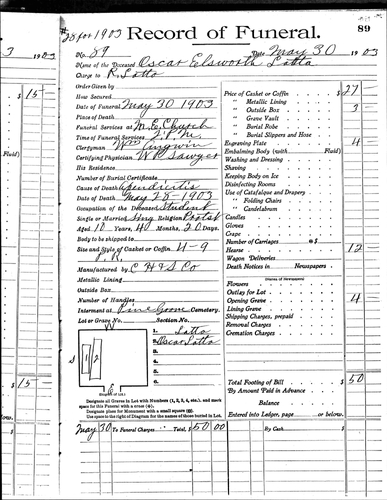 89
Record of Funeral.
No. 89 Date May 30 1903
Name of the Deceased Oscar Elsworth Lotta
Charge to R. Lotta
Order Given by
How Secured
Date of Funeral May 30 1903
Place of Death
Funeral Services at M.E. Church
Time of Funeral Services 2 P.M.
Clergyman Wm
Certifying Physician W P Sawyer
His Residence
Number of Burial Certificate
Cause of Death Apendicitis
Date of Death May 28 - 1903
Occupation of the Deceased Student
Single or Married Sing Religion
Aged 10 Years, Months, 20 Days
Body to be shipped to
Size and Style of Casket or Coffin 4-9
Manufactured by C H & S Co
Metallic Lining
Outside Box
Number of Handles
Interment at Pine Cemetery.
Lot or Grave No. Section No.
1. Lotta
2. Oscar Lotta
3.
4.
5.
6.
(Diagram of Lot.)
Designate all Graves in Lot with Numbers (1, 2, 3, 4, etc.), and mark
space for this Funeral with a cross
Designate place for Monument with a small square
Use space to the right of Diagram for the names of those buried in Lot.
Price of Casket or Coffin $ 27
" Metallic Lining
" Outside Box 3
" Grave Vault
" Burial Robe
" Burial Slippers and Hose
Engraving Plate 4
Embalming Body (with Fluid)
Washing and Dressing
Shaving
Keeping Body on Ice
Disinfecting Rooms
Use of Catafalque and Drapery
" Folding Chairs
" Candelabrum
Candles
Gloves
Crape
Number of Carriages @ $
Hearse 12
Wagon Deliveries
Death Notices in Newspapers
(Names of Newspapers)
Flowers
Outlay for Lot
Opening Grave 4
Lining Grave
Shipping Charges, prepaid
Removal Charges
Cremation Charges
Total Footing of Bill $ 50
By Amount Paid in Advance
Balance
Entered into Ledger, page or below.
May 30 To Funeral Charges Total, $ 50 00 By Cash $
3 1903
$ 15
Fluid)
$ 15
low.
$